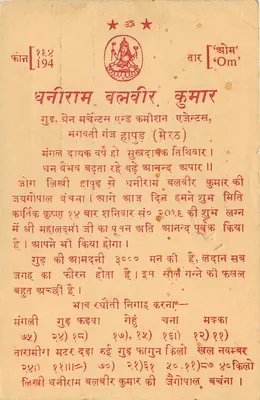 ॐ
फोन १६४ 194
तार 'ओम' 'Om'
धनीराम बलवीर कुमार
गुड़, ग्रेन मर्चेन्टस एन्ड कमीशन एजेन्टस,
भगवती गंज हापुड़ (मेरठ)
मंगल दायक वर्ष हो सुखदायक तिथिवार।
धन वैभव बढ़ता रहे बढ़े आनन्द अपार॥
जोग लिखी हापुड़ से धनीराम बलवीर कुमार की
जयगोपाल बंचना। आगे आज दिन हमने शुभ मिति
कार्तिक कृष्णा १४ बार शनिवार सं० २०२६ की शुभ लग्न
में श्री महालक्ष्मी जी का पूजन अति आनन्द पूर्वक किया
है। आपने भी किया होगा।
गुड़ की आमदनी ३००० मन की है, लदान सब
जगह का फौरन होता है। इस साल गन्ने की फसल
बहुत अच्छी है।
भाव रघौती निगाह करना—
मंगली गुड़ फड़वा गेहूं चना मक्का
७५) २४) १८) १७), १५) १३।) १२) ११)
तारामीरा मटर दड़ा नई गुड़ फागुन किलो खैल नवम्बर
२४) ७०) २१)
लिखी धनीराम बलवीर कुमार की जैगोपाल, बचंना।